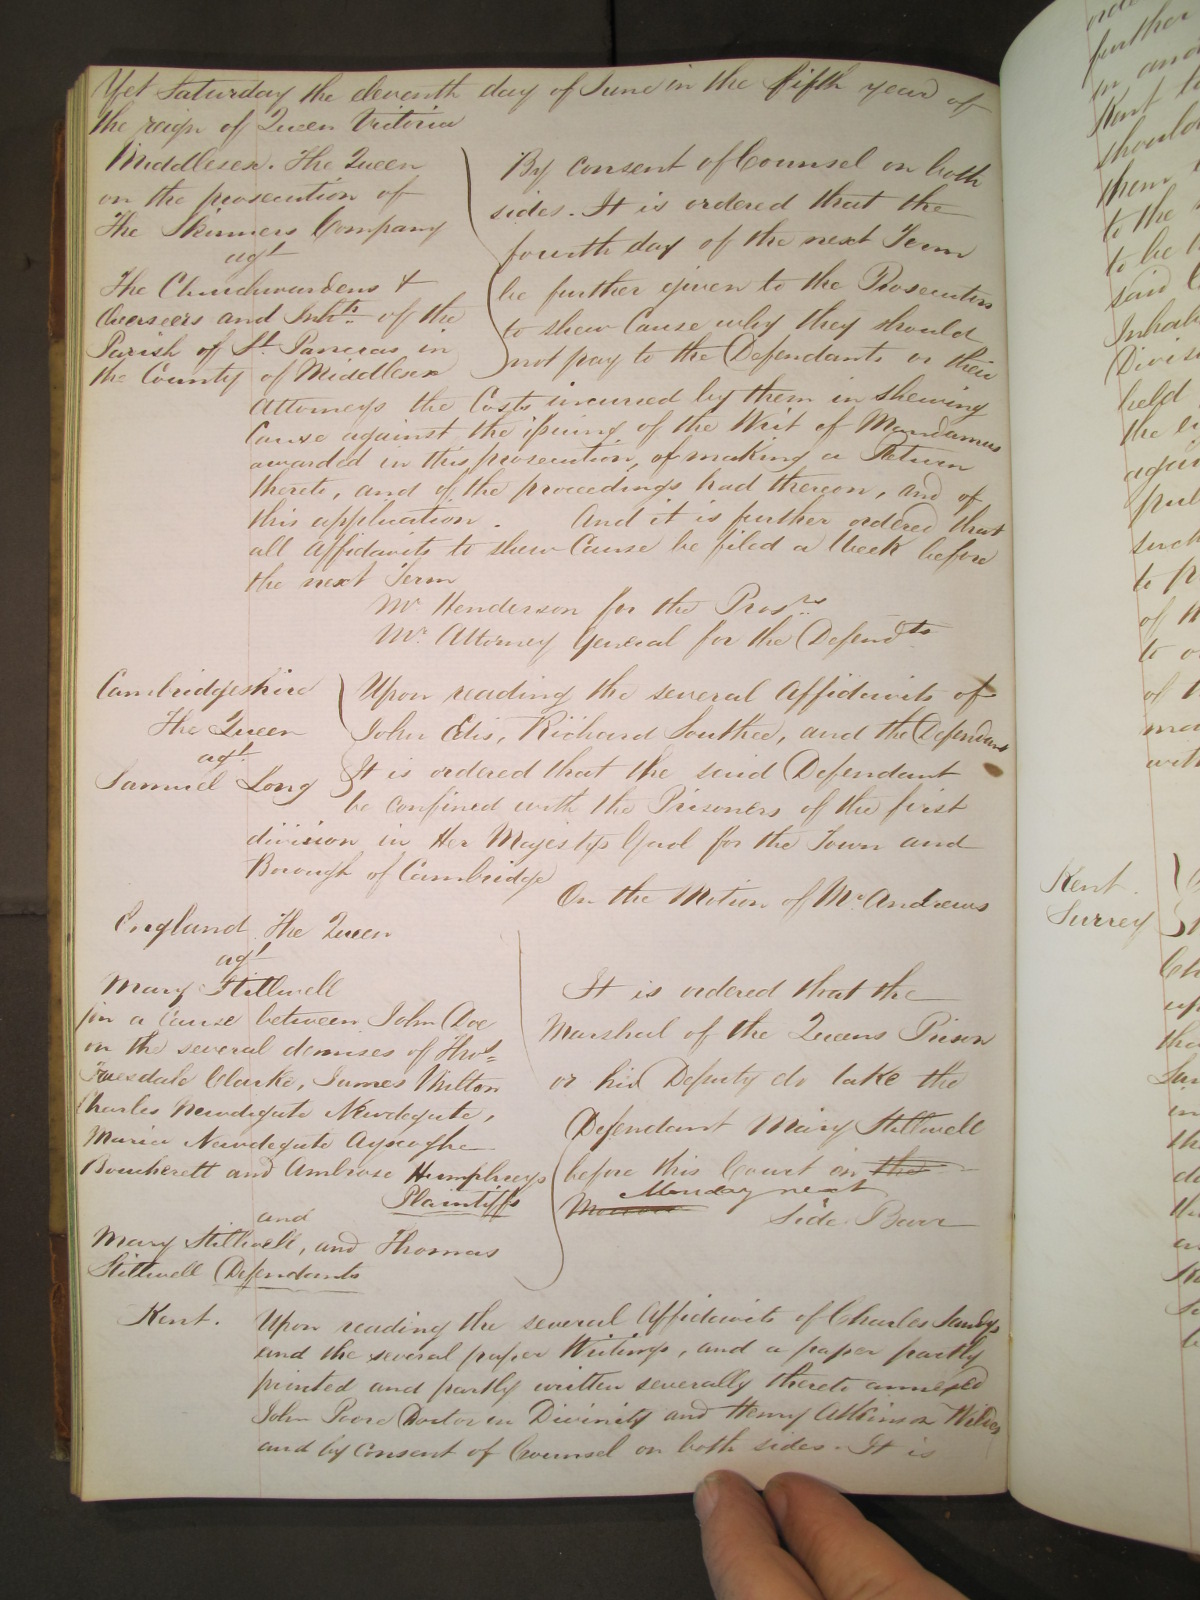 Yet Saturday the eleventh day of June in the fifth year of
the reign of Queen Victoria
Middlesex. The Queen
on the prosecution of
The Skinners Company
agt
The Churchwardens &
Overseers and Inhts of the
Parish of St Pancras in
the County of Middlesex
By consent of Counsel on both
sides. It is ordered that the
fourth day of the next Term
be further given to the Prosecutors
to shew Cause why they should
not pay to the Defendants or their
Attorneys the Costs incurred by them in shewing
Cause against the issuing of the Writ of Mandamus
awarded in this prosecution, of making a Return
thereto, and of the proceedings had thereon, and of
this application. And it is further ordered that
all Affidavits to shew Cause be filed a Week before
the next Term
Mr Henderson for the Prosrs
Mr Attorney General for the Defendts
Cambridgeshire
The Queen
agt
Samuel Long
Upon reading the several Affidavits of
John Edis, Richard Southee, and the Defendant
It is ordered that the said Defendant
be confined with the Prisoners of the first
division in Her Majestys Gaol for the Town and
Borough of Cambridge
On the Motion of Mr Andrews
England The Queen
agt
Mary Stillwell
in a cause between John Doe
on the several demises of Thos
Truesdale Clarke, James Wilton
Charles Newdigate Newdegate,
Maria Newdegate Ayscoghe
Boucherett and Ambrose Humphreys
Plaintiffs
and
Mary Stillwell, and Thomas
Stillwell Defendants
It is ordered that the
Marshal of the Queens Prison
or his Deputy do take the
Defendant Mary Stillwell
before this Court on the
Monday next
Morrow
Side Barr
Kent.
Upon reading the several Affidavits of Charles Sandys
and the several paper Writings, and a paper partly
printed and partly written severally thereto annexed
John Poore Doctor in Divinity and Henry Atkinson Wildes
and by Consent of Counsel on both sides. It is
further
Kent
should
them
to the
to be
said
held
to p
Kent.
Surrey